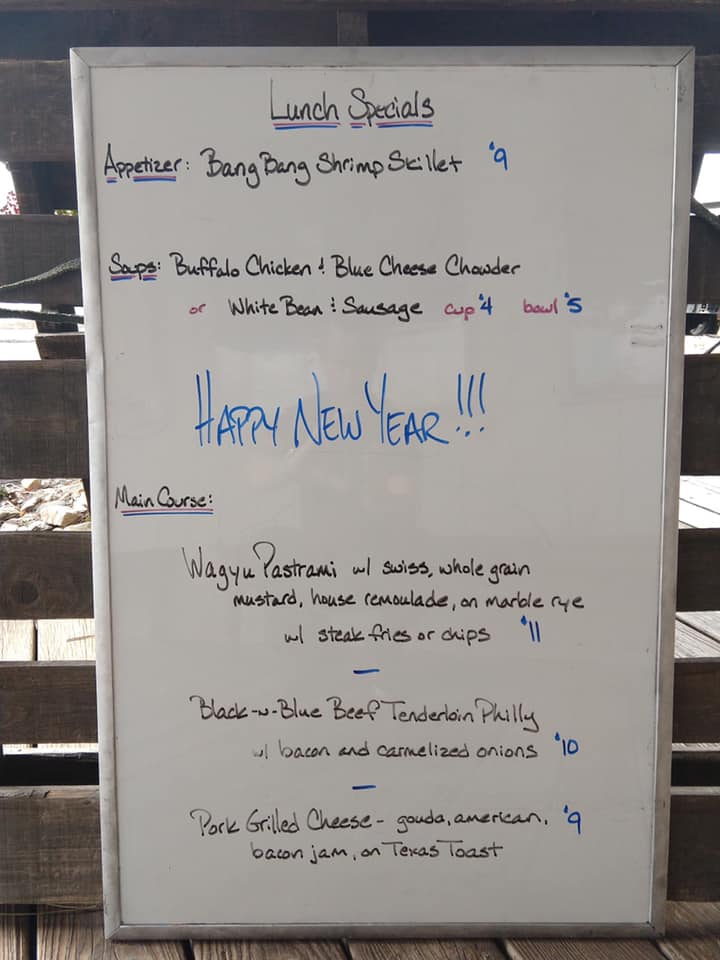 Lunch Specials
Appetizer: Bang Bang Shrimp Skillet $9
Soups: Buffalo Chicken & Blue Cheese Chowder
or White Bean & Sausage cup $4 bowl $5
HAPPY NEW YEAR!!!
Main Course:
Wagyu Pastrami w/ swiss, whole grain
mustard, house remoulade, on marble rye
w/ steak fries or chips $11
—
Black-n-Blue Beef Tenderloin Philly
w/ bacon and carmelized onions $10
—
Pork Grilled Cheese - gouda, american, $9
bacon jam, on Texas Toast